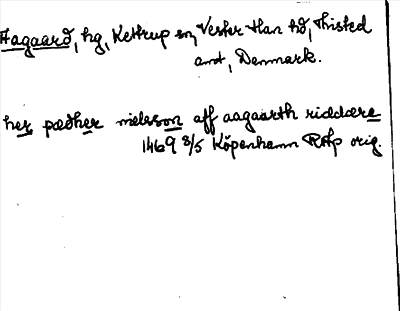 Aagaard, hg, Kettrup sn, Vester Han hd, Thisted
amt, Danmark.
her pædher nielsson aff aagaarth riddære
1469 3/5 Köpenhamn RAp orig.